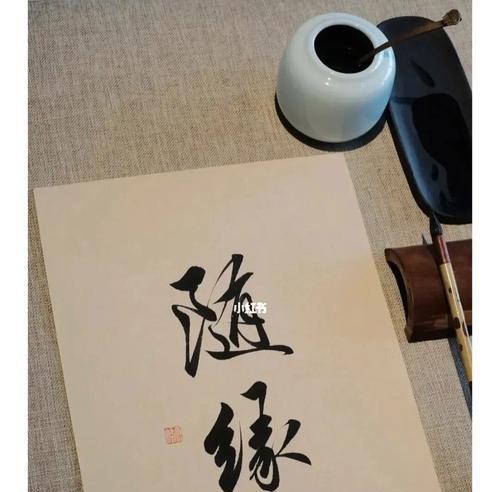 随
小红书
缘